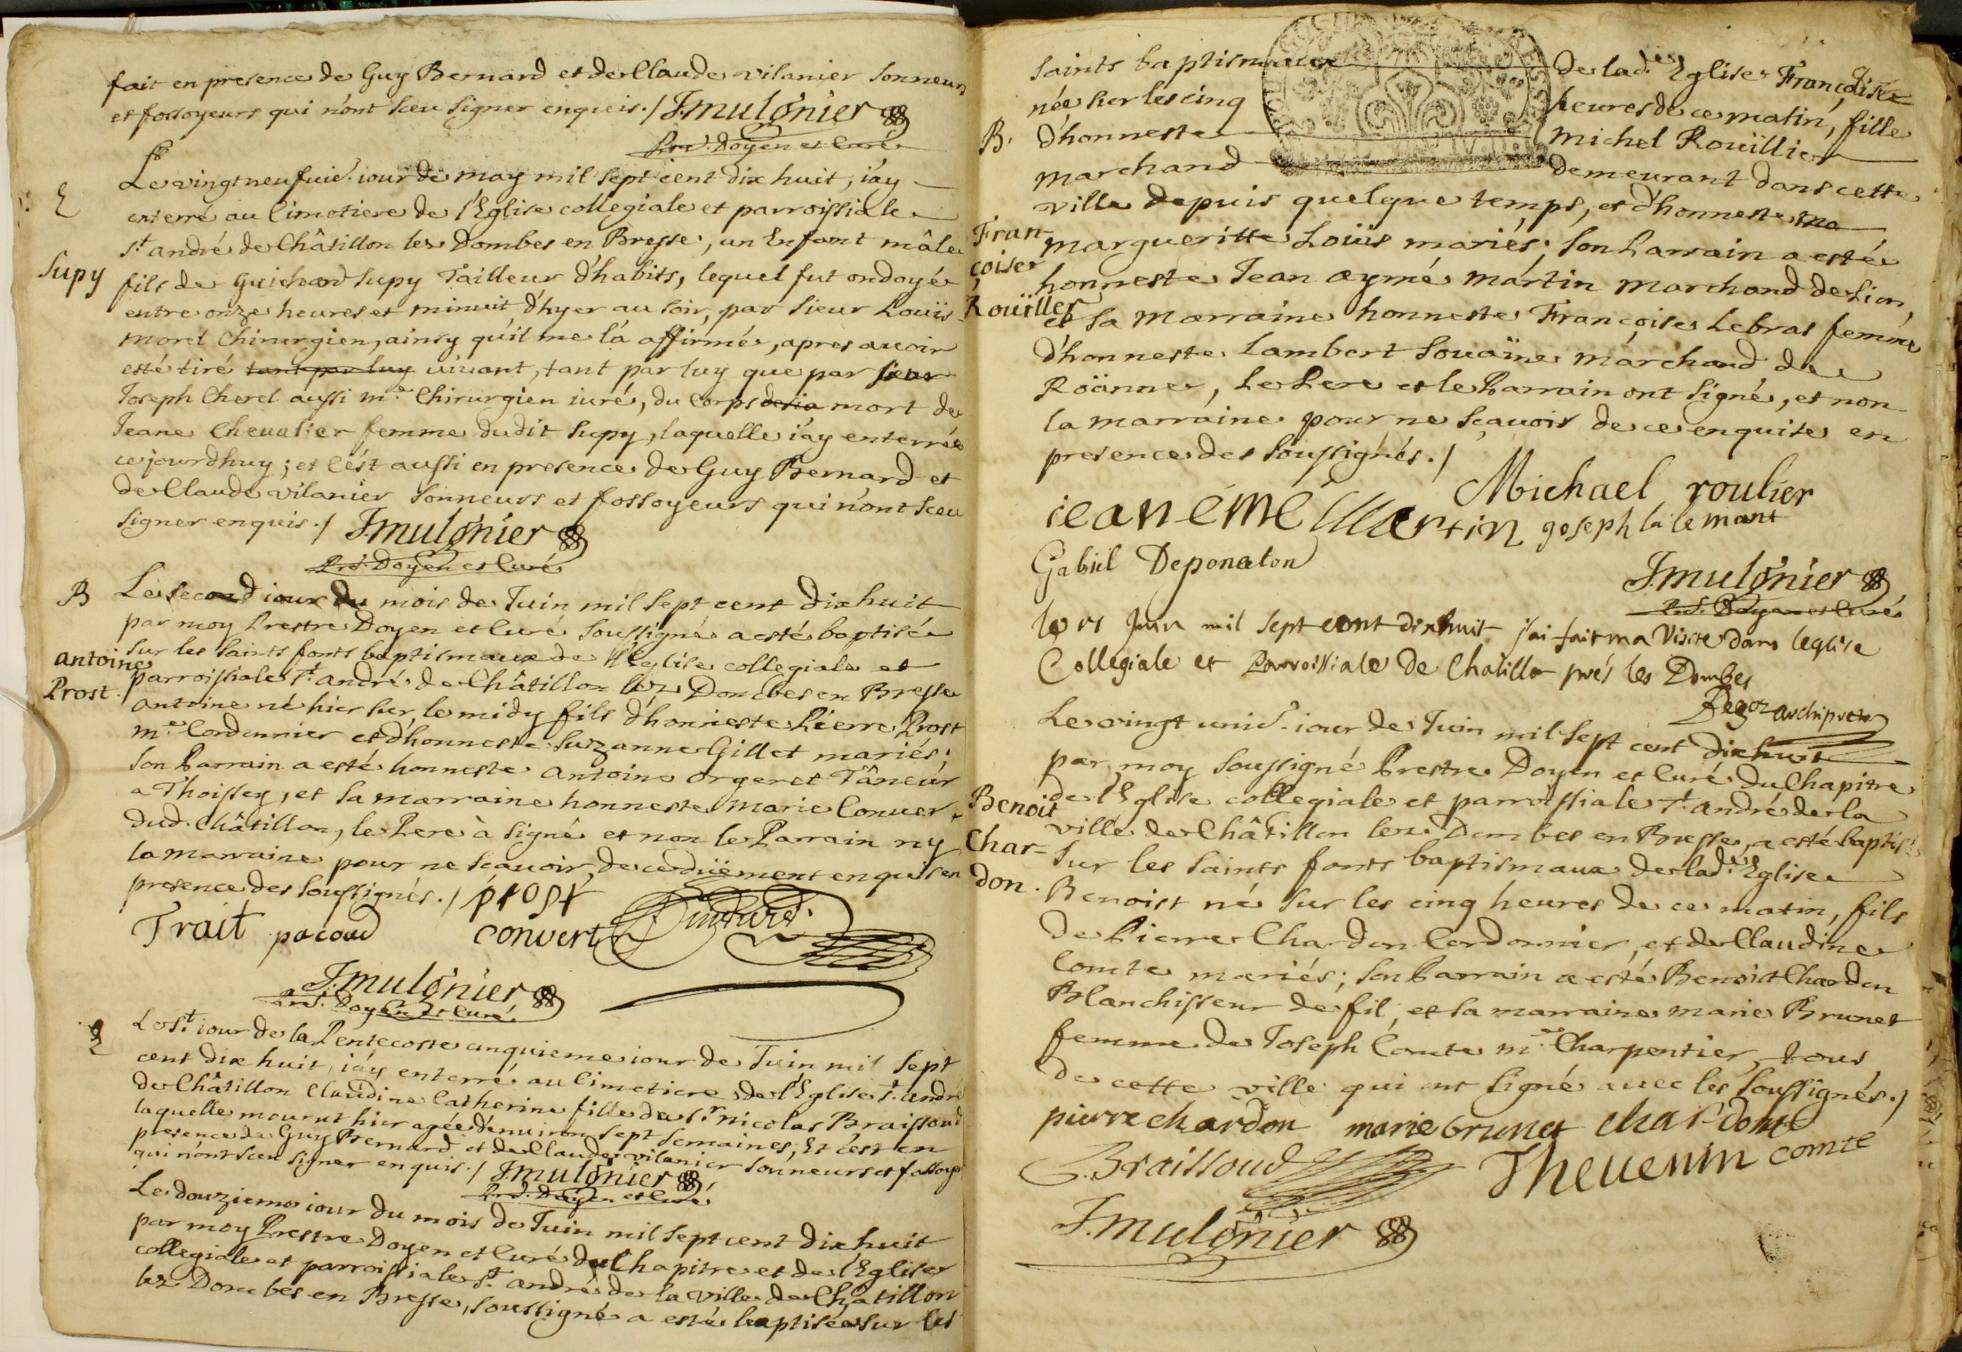 fait en presence de Guy Bernard et de Claude vilanier sonneurs
et fossoyeurs qui n'ont sceu signer enquis./ J. mulónier
Pre. Doyen et Curé
E
Le vingt neufuie. iour de may mil sept cent dix huit, i'ay
enterré au Cimetiere de l'Eglise collegiale et parroissiale
St. andré de Châtillon les Dombes en Bresse, un Enfant mâle
Supy
fils de Guichard Supy Tailleur d'habits, lequel fut ondoyé
entre onze heures et minuit d'hyer au soir, par sieur Louïs
morel Chirurgien, ainsy qu'il me l'a affirmé, apres auoir
esté tiré tant par luy viuant, tant par luy que par sieur
Joseph Cherel aussi me. Chirurgien iuré, du Corps mort de
Jeane Cheualier femme dudit Supy, laquelle i'ay enterrée
ce jourd'huy; et c'est aussi en presence de Guy Bernard et
de Claude vilanier sonneurs et fossoyeurs qui n'ont sceu
signer enquis./ J. mulónier
Pre. Doyen et Curé
B
Le second iour du mois de Juin mil sept cent dix huit
par moy Prestre Doyen et Curé soussigné a esté baptisé
sur les saints fonts baptismaux de l'Eglise collegiale et
antoine
Prost.
parroissiale St. andré de Châtillon lez Dombes en Bresse
antoine né hier sur le midy fils d'honneste Pierre Prost
me. Cordonnier et d'honneste Suzanne Gillet mariés;
son Parrain a esté honneste antoine orgeret Tâneur
a Thoissey, et sa marraine honneste Marie Conuer
dud. Châtillon, le Pere à signé et non le Parrain ny
la marraine pour ne sçauoir, de ce düement enquis en
presence des soussignés./ prost
Trait pacoud convert
J. mulónier
Pre. Doyen et Curé
E
Le St. iour de la Pentecoste cinquieme iour de Juin mil sept
cent dix huit, i'ay enterré au Cimetiere de l'Eglise St. andré
de Châtillon Claudine Catherine fille de sr. nicolas Braissoud
laquelle mourut hier agée d'enuiron sept semaines, Et c'est en
presence de Guy Bernard et de Claude vilanier sonneurs et fossoy.
qui n'ont sceu signer enquis./ J. mulónier
Pre. Doyen et Curé
Le douzieme iour du mois de Juin mil sept cent dix huit
par moy Prestre Doyen et Curé du Chapitre et de l'Eglise
collegiale et parroissiale St. andré de la ville de Châtillon
lez Dombes en Bresse, soussigné a esté baptisée sur les
saints baptismaux de lad. Eglise Françoise
née sur les cinq heures de ce matin, fille
B.
d'honneste michel Roüillier
marchand demeurant dans cette
ville depuis quelque temps, et d'honneste ma
Fran-
çoise
Roüiller
margueritte Loüis mariés; son Parrain a esté
honneste Jean aymé mártin marchand de Lion,
et sa marraine honneste Françoise Lebras femme
d'honneste Lambert Souaïne marchand de
Roänne, Le Pere et le Parrain ont signé, et non
la marraine pour ne sçauoir de ce enquise en
presence des soussignés./
Michael roulier
iean émé Martin joseph la lemant
Gabiel Deponaton
J. mulónier
Pre. Doyen et Curé
le Juin mil sept cent dix huit j'ai fait ma Visite dans leglise
Collegiale et Parroissiale de Chatillo prés les Dombes
archiprete
Le vingt unie. iour de Juin mil sept cent dix huit
par moy soussigné Prestre Doyen et Curé du Chapitre
Benoit
Char-
don.
de l'Eglise collegiale et parroissiale St. andré de la
ville de Châtillon lez Dombes en Bresse, a esté baptisé
sur les saints fonts baptismaux de lad. Eglise
Benoist né sur les cinq heures de ce matin, fils
de Pierre Chardon Cordonnier, et de Claudine
Comte mariés; son Parrain a esté Benoist Chardon
Blanchisseur de fil, et sa marraine marie Brunet
femme de Joseph Comte me. Charpentier, tous
de cette ville qui ont signé auec les soussignés./
pierre chardon marie brunet chardont
Braissoud Theuenin comte
J. mulónier